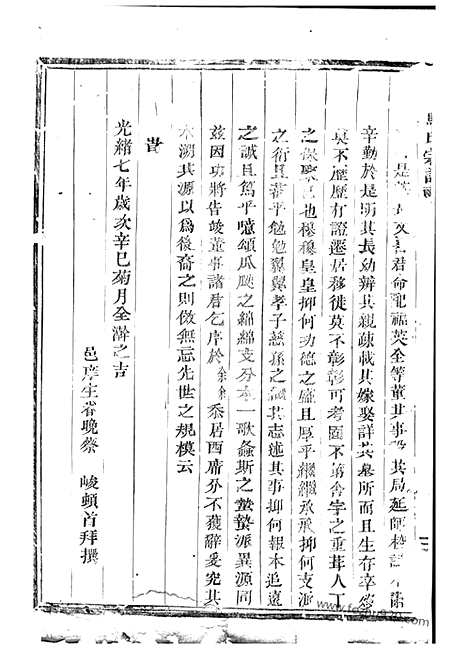 是
君命
英全等董其事
其局延師
辛勤於是明其長幼辨其親疎載其嫁娶詳其墓所而且生存卒
莫不歷歷有證遷居移徙莫不彰彰可考固不第舍宇之重葺人丁
之保聚已也穆穆皇皇抑何功德之盛且厚乎繼繼承承抑何支派
之衍且蕃乎勉勉翼翼孝子慈孫之誠其志述其事抑何報本追遠
之誠且篤乎噫頌瓜瓞之綿綿支分本一歌螽斯之蟄蟄派異源同
茲因功將告竣董事諸君乞序於余余忝居西席分不獲辭爰究其
本溯其源以為後裔之則俲無忘先世之規模云
旹
光緒七年歲次辛巳菊月全澣之吉
邑庠生眷晚蔡 峻頓首拜撰